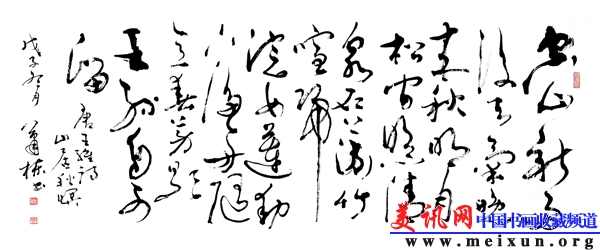 空山新雨
後天氣晚
来秋明月
松间照清
泉石上流竹
喧歸
浣女莲動
下渔舟随
意春芳歇
王孙自可
留
唐王维诗
山居秋暝
戊子 月 书
美讯网 中国书画收藏频道
www.meixun.org